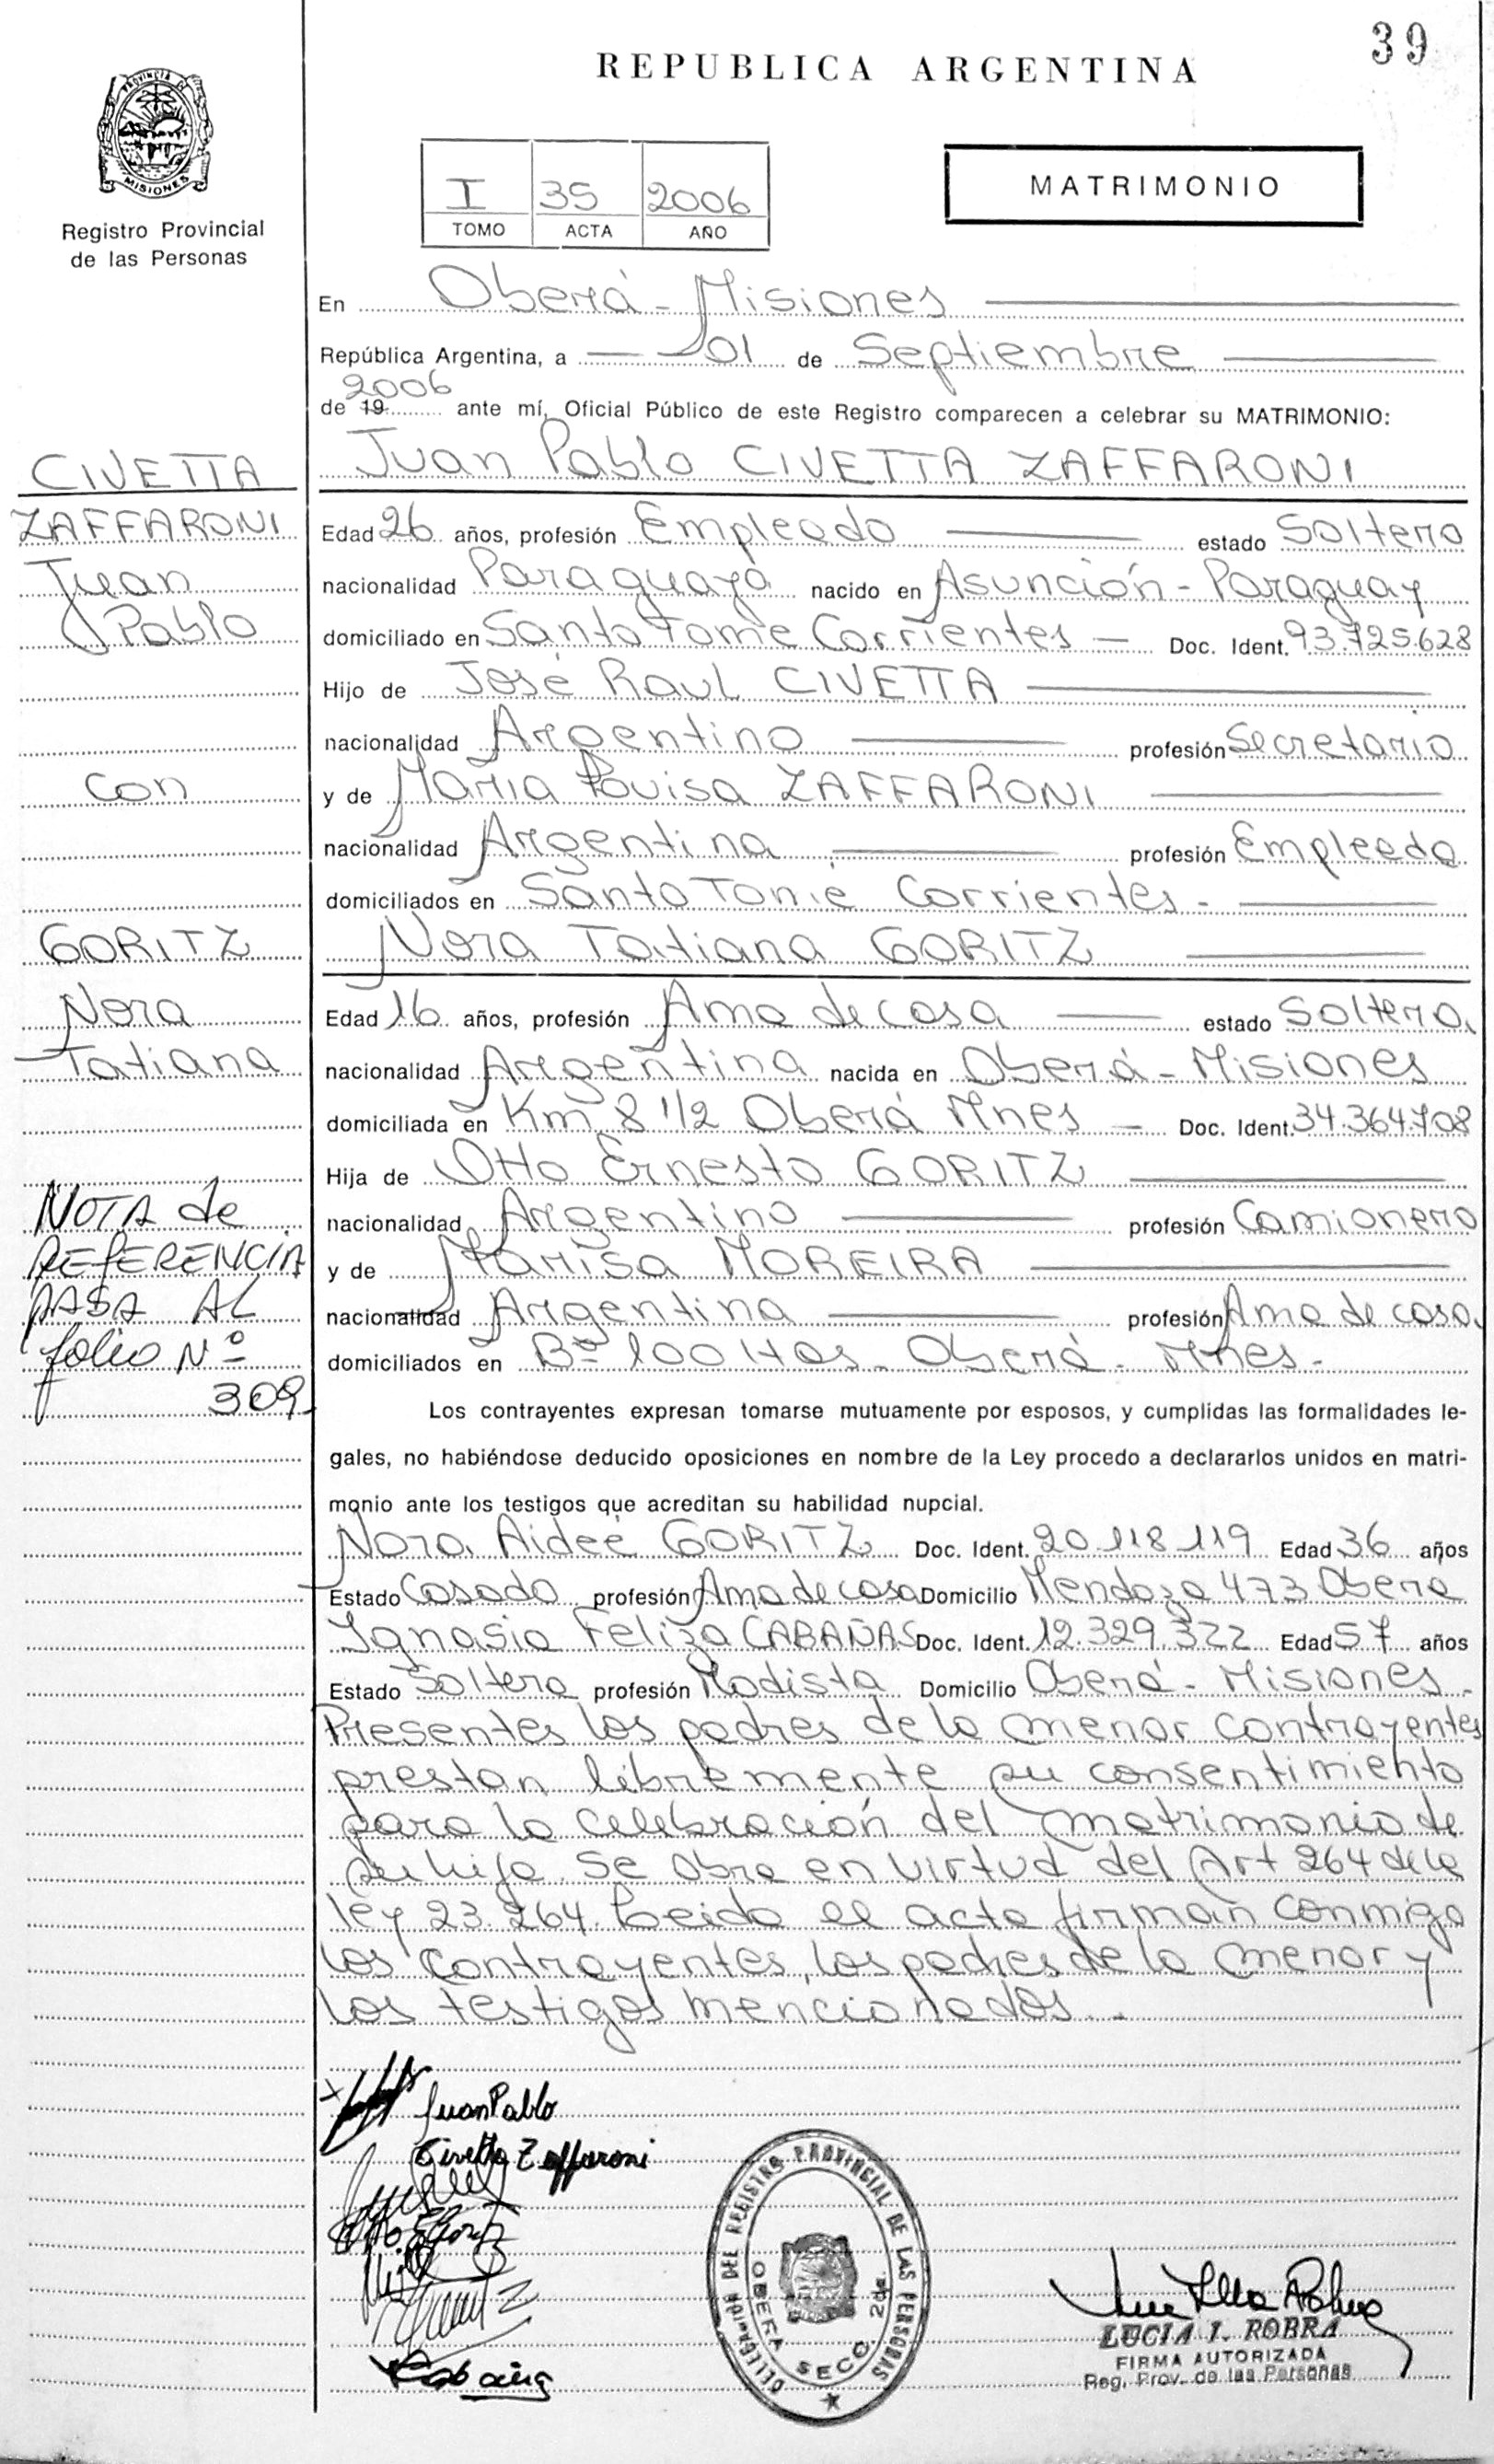 39
REPUBLICA ARGENTINA
PROVINCIA DE
MISIONES
Registro Provincial
de las Personas
I 35 2006
TOMO ACTA AÑO
MATRIMONIO
En Oberá - Misiones
República Argentina, a 01 de Septiembre
2006
de 19 ante mí, Oficial Público de este Registro comparecen a celebrar su MATRIMONIO:
Juan Pablo CIVETTA ZAFFARONI
CIVETTA
ZAFFARONI
Juan
Pablo
con
GORITZ
Nora
Tatiana
NOTA de
REFERENCIA
PASA AL
folio Nº
309
Edad 26 años, profesión Empleado estado Soltero
nacionalidad Paraguaya nacido en Asunción - Paraguay
domiciliado en Santo Tomé Corrientes Doc. Ident. 93.725.628
Hijo de José Raul CIVETTA
nacionalidad Argentino profesión Secretario
y de Maria Louisa ZAFFARONI
nacionalidad Argentina profesión Empleada
domiciliados en Santo Tomé Corrientes -
Nora Tatiana GORITZ
Edad 16 años, profesión Ama de casa estado Soltera
nacionalidad Argentina nacida en Oberá - Misiones
domiciliada en Km 8 1/2 Oberá Mnes Doc. Ident. 34.364.708
Hija de Otto Ernesto GORITZ
nacionalidad Argentino profesión Camionero
y de Marisa MOREIRA
nacionalidad Argentina profesión Ama de casa
domiciliados en Bº 100 Has - Oberá - Mnes -
Los contrayentes expresan tomarse mutuamente por esposos, y cumplidas las formalidades le-
gales, no habiéndose deducido oposiciones en nombre de la Ley procedo a declararlos unidos en matri-
monio ante los testigos que acreditan su habilidad nupcial.
Nora Aideé GORITZ Doc. Ident. 20.118.119 Edad 36 años
Estado Casada profesión Ama de casa Domicilio Mendoza 473 Oberá
Ignasia Feliza CABAÑAS Doc. Ident. 12.329.322 Edad 57 años
Estado Soltera profesión Modista Domicilio Oberá - Misiones -
Presentes los padres de la menor contrayentes
prestan libremente su consentimiento
para la celebración del matrimonio de
su hija. Se obra en virtud del Art 264 de la
ley 23.264. Leida el acta firman conmigo
los contrayentes, los padres de la menor y
los testigos mencionados.-
Juan Pablo
Civetta Zaffaroni
DELEGACIÓN DEL REGISTRO PROVINCIAL DE LAS PERSONAS
OBERA SECC 2da.
LUCIA I. ROBRA
FIRMA AUTORIZADA
Reg. Prov. de las Personas